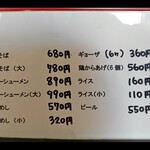 そば 680円
そば（大） 780円
ーシューメン 890円
ーシューメン（大） 990円
めし 570円
めし（小） 320円
ギョーザ（6ケ） 360円
鶏からあげ（6個） 560円
ライス 160円
ライス（小） 110円
ビール 550円